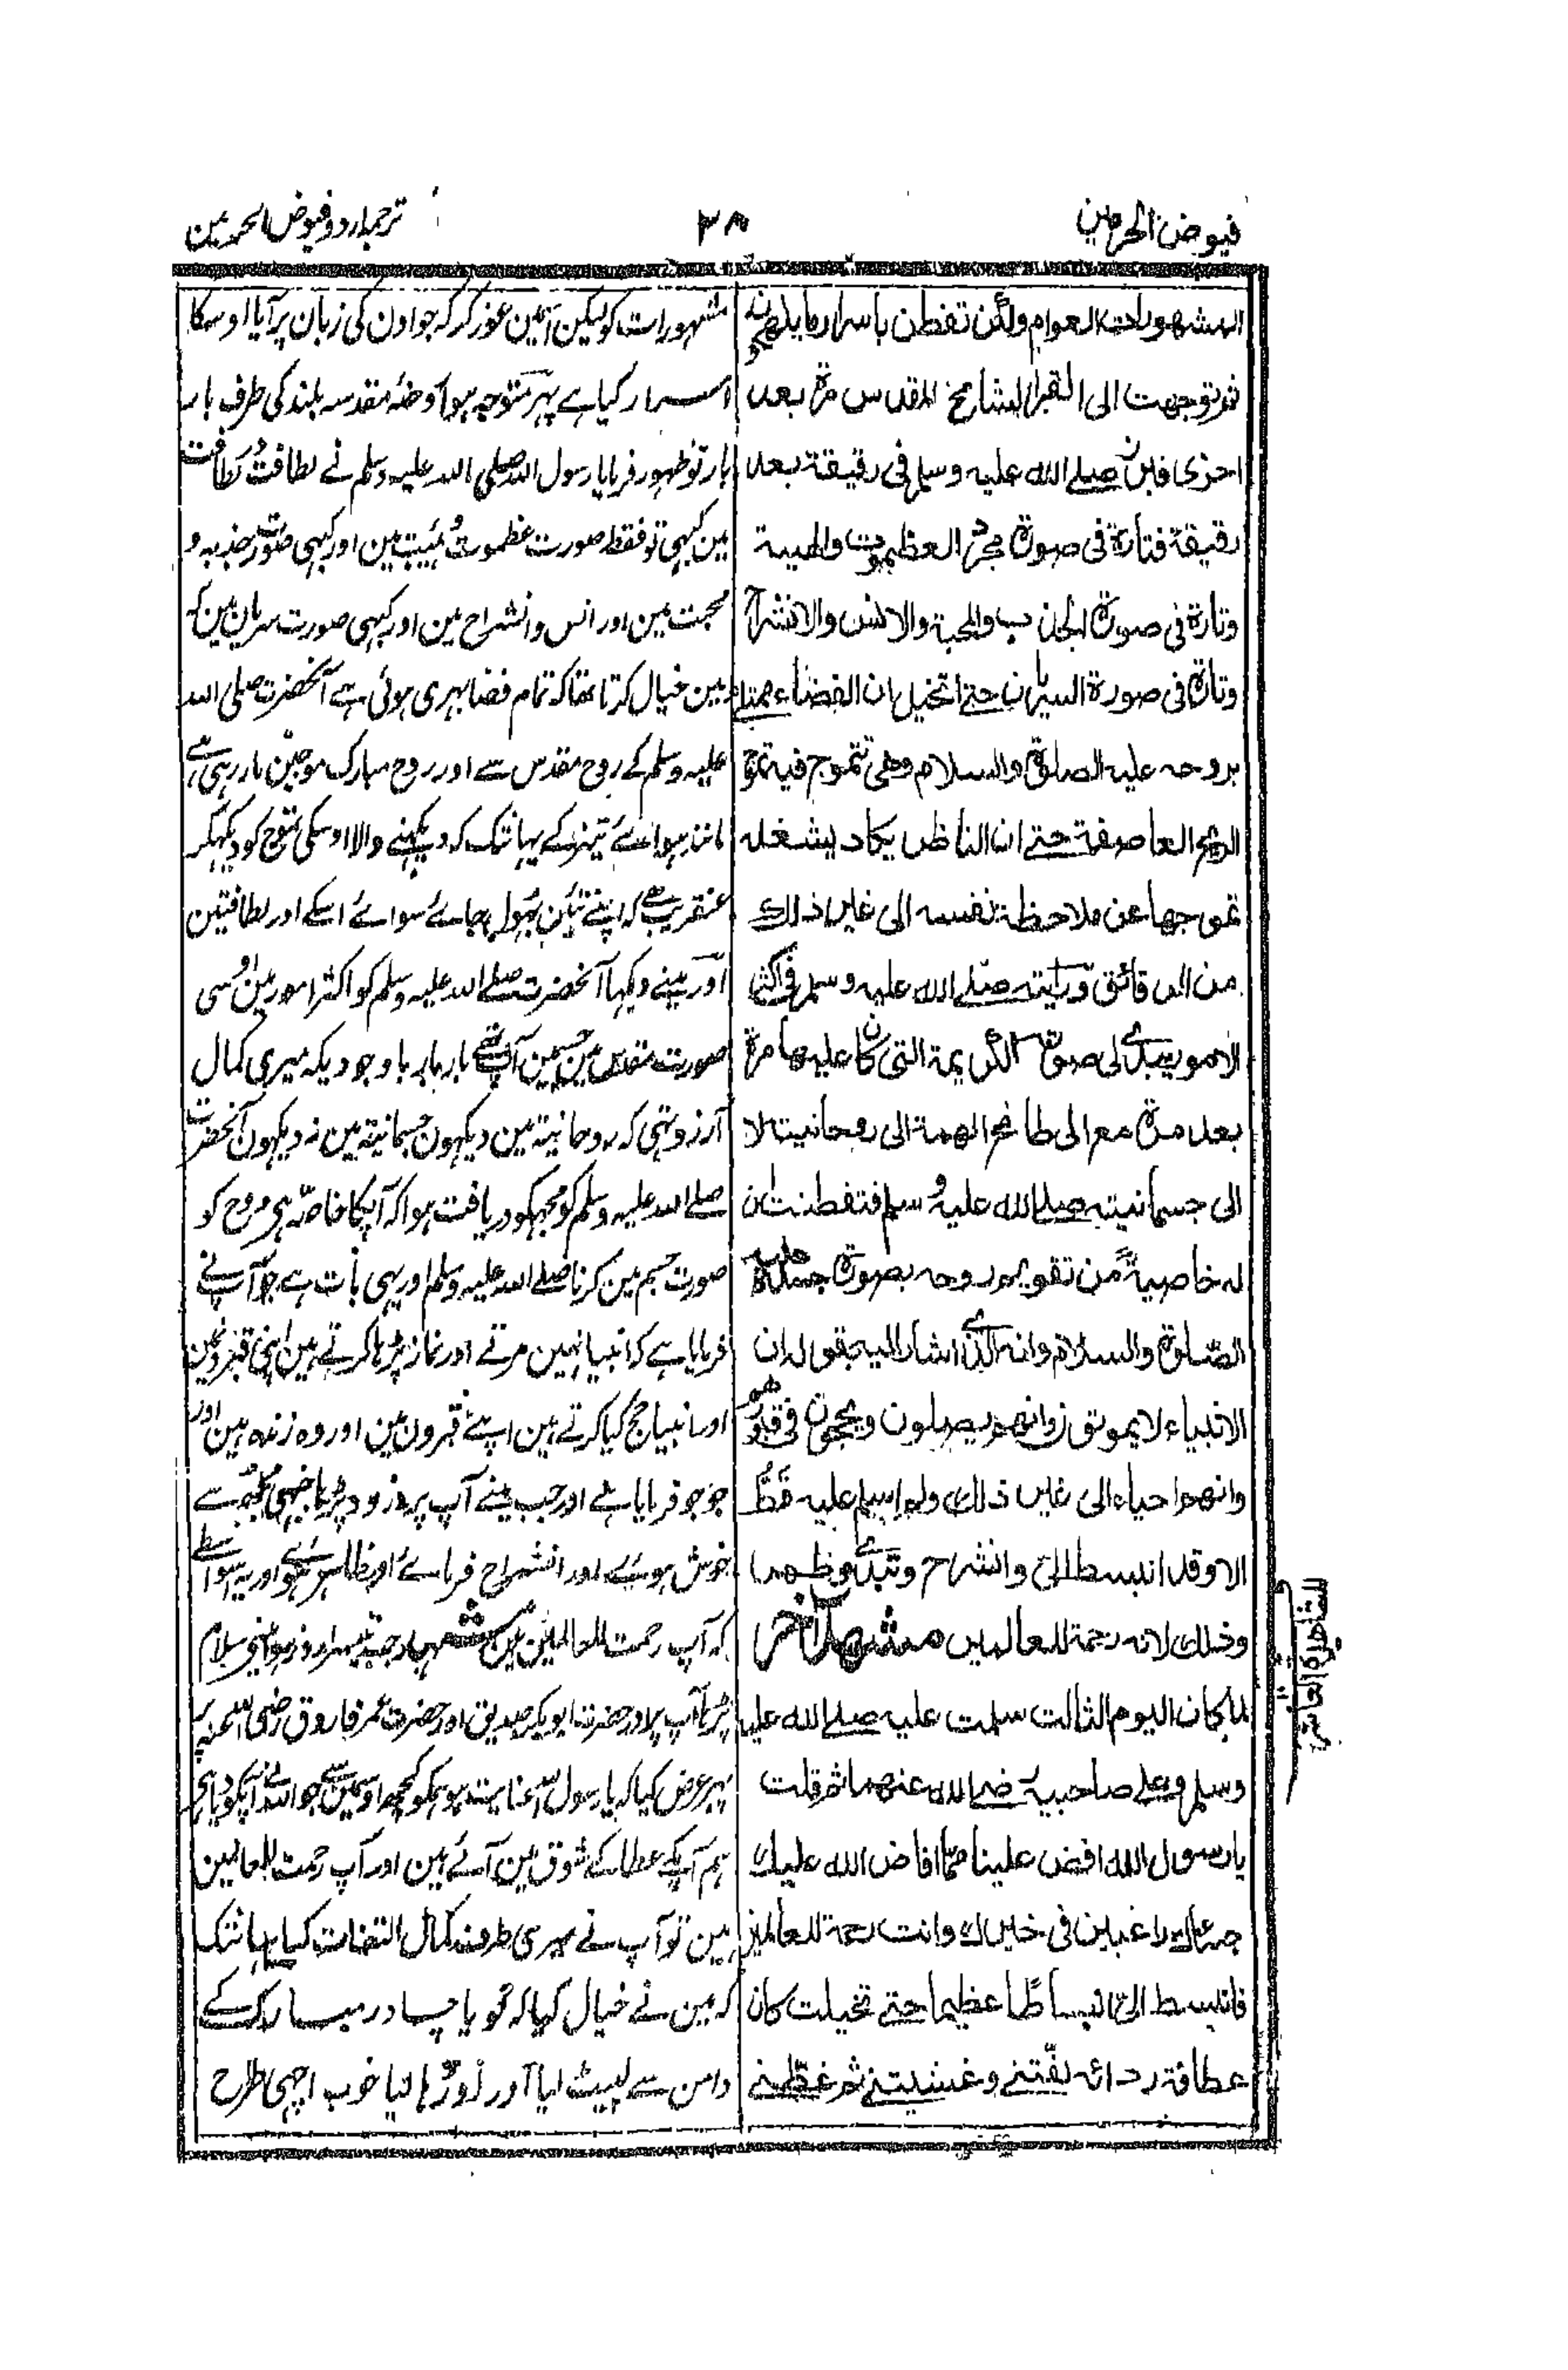 فیوض الحرمین
۲۸
ترجمہ اردو فیوض الحرمین
المشهورات العوام ولكن تفطن باسرار ما يلهجونه
ثم توجهت الى القبر الشامخ المقدس مرة بعد
اخرى فبرز صلے الله عليه وسلم فى رقيقة بعد
رقيقة فتارة فى صورة مجرد العظموت والهيبة
وتارة فى صورة الجذب والمحبة والانس والانشراح
وتارة فى صورة السريان حتے اتخيل ان الفضاء ممتلئ
بروحه عليه الصلوة والسلام وهى تتموج فيه تموج
الريح العاصفة حتے ان الناظر يكاد يشغله
تموجها عن ملاحظة نفسه الى غير ذلك
من الدقائق ورايته صلے الله عليه وسلم فى اكثر
الامور يبدى لى صورته الكريمة التى كان عليها مرة
بعد مرة مع انى طامح الهمة الى روحانيته لا
الى جسمانيته صلے الله عليه وسلم فتفطنت ان
له خاصية من تقويم روحه بصورة جسده عليه
الصلوة والسلام وانه الذى اشار اليه بقوله ان
الانبياء لا يموتون وانهم يصلون ويحجون فى قبورهم
وانهم احياء الى غير ذلك ولم اسلم عليه قط
الا وقد انبسط الى وانشرح وتبدى وظهر
وذلك لانه رحمة للعالمين مشهد آخر
لما كان اليوم الثالث سلمت عليه صلے الله عليه
وسلم وعلے صاحبيه رضے الله عنهما ثم قلت
يا رسول الله افض علينا مما افاض الله عليك
جئناك راغبين فى خيرك وانت رحمة للعالمين
فانبسط الى انبساطا عظيما حتے تخيلت كان
عطافة ردائه لفتنے وغشيتنے ثم غطنے
مشہورات کو لیکن اسمین غور کر کہ جو اون کی زبان پر آیا اوسکا
اسرار کیا ہے پہر متوجہ ہوا روضۂ مقدسہ بلند کی طرف بار
بار تو ظہور فرمایا رسول اللہ صلی اللہ علیہ وسلم نے لطافت لطافت
مین کبہی تو فقط صورت عظموت وہیبت مین اور کبہی صورت جذبہ و
محبت مین اور انس و انشراح مین اور کبہی صورت سریان مین کہ
مین خیال کرتا تھا کہ تمام فضا بہری ہوئی ہے آنحضرت صلی اللہ
علیہ وسلم کے روح مقدس سے اور روح مبارک موجین مار رہی ہے
مانند ہوائے تیز کے یہانتک کہ دیکہنے والا اوسکی تموج کو دیکہکر
عنقریب ہے کہ اپنے تئین بہول جائے سوائے اسکے اور لطافتین
اور مینے دیکہا آنحضرت صلے اللہ علیہ وسلم کو اکثر امور مین اوسی
صورت مقدس مین جسمین آپ تہے بار بار باوجودیکہ میری کمال
آرزو تہی کہ روحانیتہ مین دیکہون جسمانیتہ مین نہ دیکہون آنحضرت
صلے اللہ علیہ وسلم کو مجہکو دریافت ہوا کہ آپکا خاصہ ہے روح کو
صورت جسم مین کرنا صلے اللہ علیہ وسلم اور یہی بات ہے جو آپ نے
فرمایا ہے کہ انبیا نہین مرتے اور نماز پڑہا کرتے ہین اپنی قبرونمین
اور انبیا حج کیا کرتے ہین اپنے قبرون مین اور وہ زندہ ہین اور
جو جو فرمایا ہے اور جب مینے آپ پر درود پڑہا مجہہ سے
خوش ہوئے اور انشراح فرمائے اور ظاہر ہوئے اور یہ اسواسطے
کہ آپ رحمت للعالمین ہین مشہد جب تیسرا روز ہوا مینے سلام
پڑہا آپ پر اور حضرت ابوبکر صدیق اور حضرت عمر فاروق رضی اللہ عنہ پر
پہر عرض کیا کہ یا رسول اللہ عنایت ہو ہمکو کچہہ اوسمین سے جو اللہ نے آپکو دیا ہے
ہم آپکے عطا کے شوق مین آئے ہین اور آپ رحمت للعالمین
ہین تو آپ نے میری طرف کمال التفات کیا یہانتک
کہ مین نے خیال کیا کہ گویا چادر مبارک کے
دامن سے لپیٹ لیا اور اوڑہا لیا خوب اچہی طرح